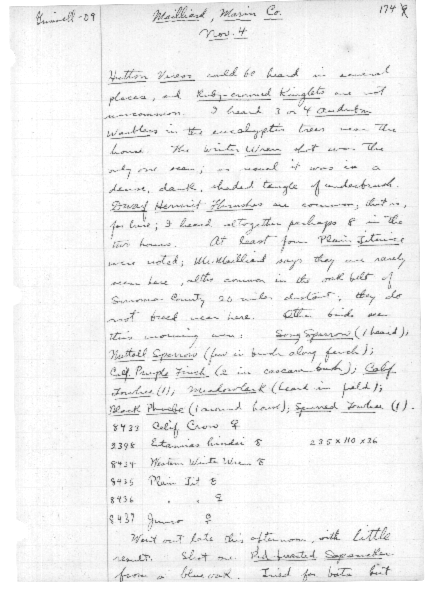 Grinnell-09 Mailliard Marin Co. 174
Nov. 4
Hutton Vireos could be heard in several
places, and Ruby-crowned Kinglets are not
uncommon. I heard 3 or 4 Audubon
Warblers in the eucalyptus trees near the
house. The Winter Wren shot was the
only one seen; as usual it was in a
dense, dank, shaded tangle of underbrush.
Dwarf Hermit Thrushes are common; that is,
for here; I heard altogether perhaps 8 in the
two hours. At least four Plain Titmice
were noted; Mr. Mailliard says they are rarely
seen here, altho common in the oak belt of
Sonoma County 20 miles distant; they do
not breed near here. Other birds seen
this morning were: Song Sparrow (1 heard);
Nuttall Sparrow (few in brush along fence);
Calif Purple Finch (2 in cascara bush); Calif
Towhee (1); Meadowlark (heard in field);
Black Phoebe (1 around house); Spurred Towhee (1).
8433 Calif Crow ♀
2398 Eutamias hindsi ♂ 235 x 110 x 36
8434 Western Winter Wren ♂
8435 Plain Tit ♂
8436 " " ♀
8437 Junco ♀
Went out late this afternoon, with little
result. Shot one Red-breasted Sapsucker
from a blue oak. Tried for bats but